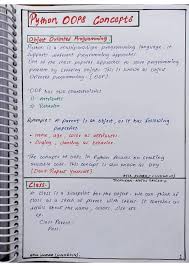 Python OOPs Concepts
Object Oriented Programming
Python is a multiparadigm programming language. It
supports different programming approaches.
One of the most popular approaches to solve programming
problem by creating objects. This is known as Object
Oriented Programming (OOP)
OOP has two characteristics
1) Attributes
2) Behavior
Example: A Parrot is an object, as it has following
properties
name, age, color as attributes
Singing, dancing as behavior
The concept of OOPs in Python focuses on creating
reusable code. This concept is also known as DRY
(Don't Repeat Yourself)
Class
A class is a blueprint for the object. We can think of
class as a sketch of Parrot with labels. It contains all
details about the name, colors, size etc.
Class Parrot:
Pass